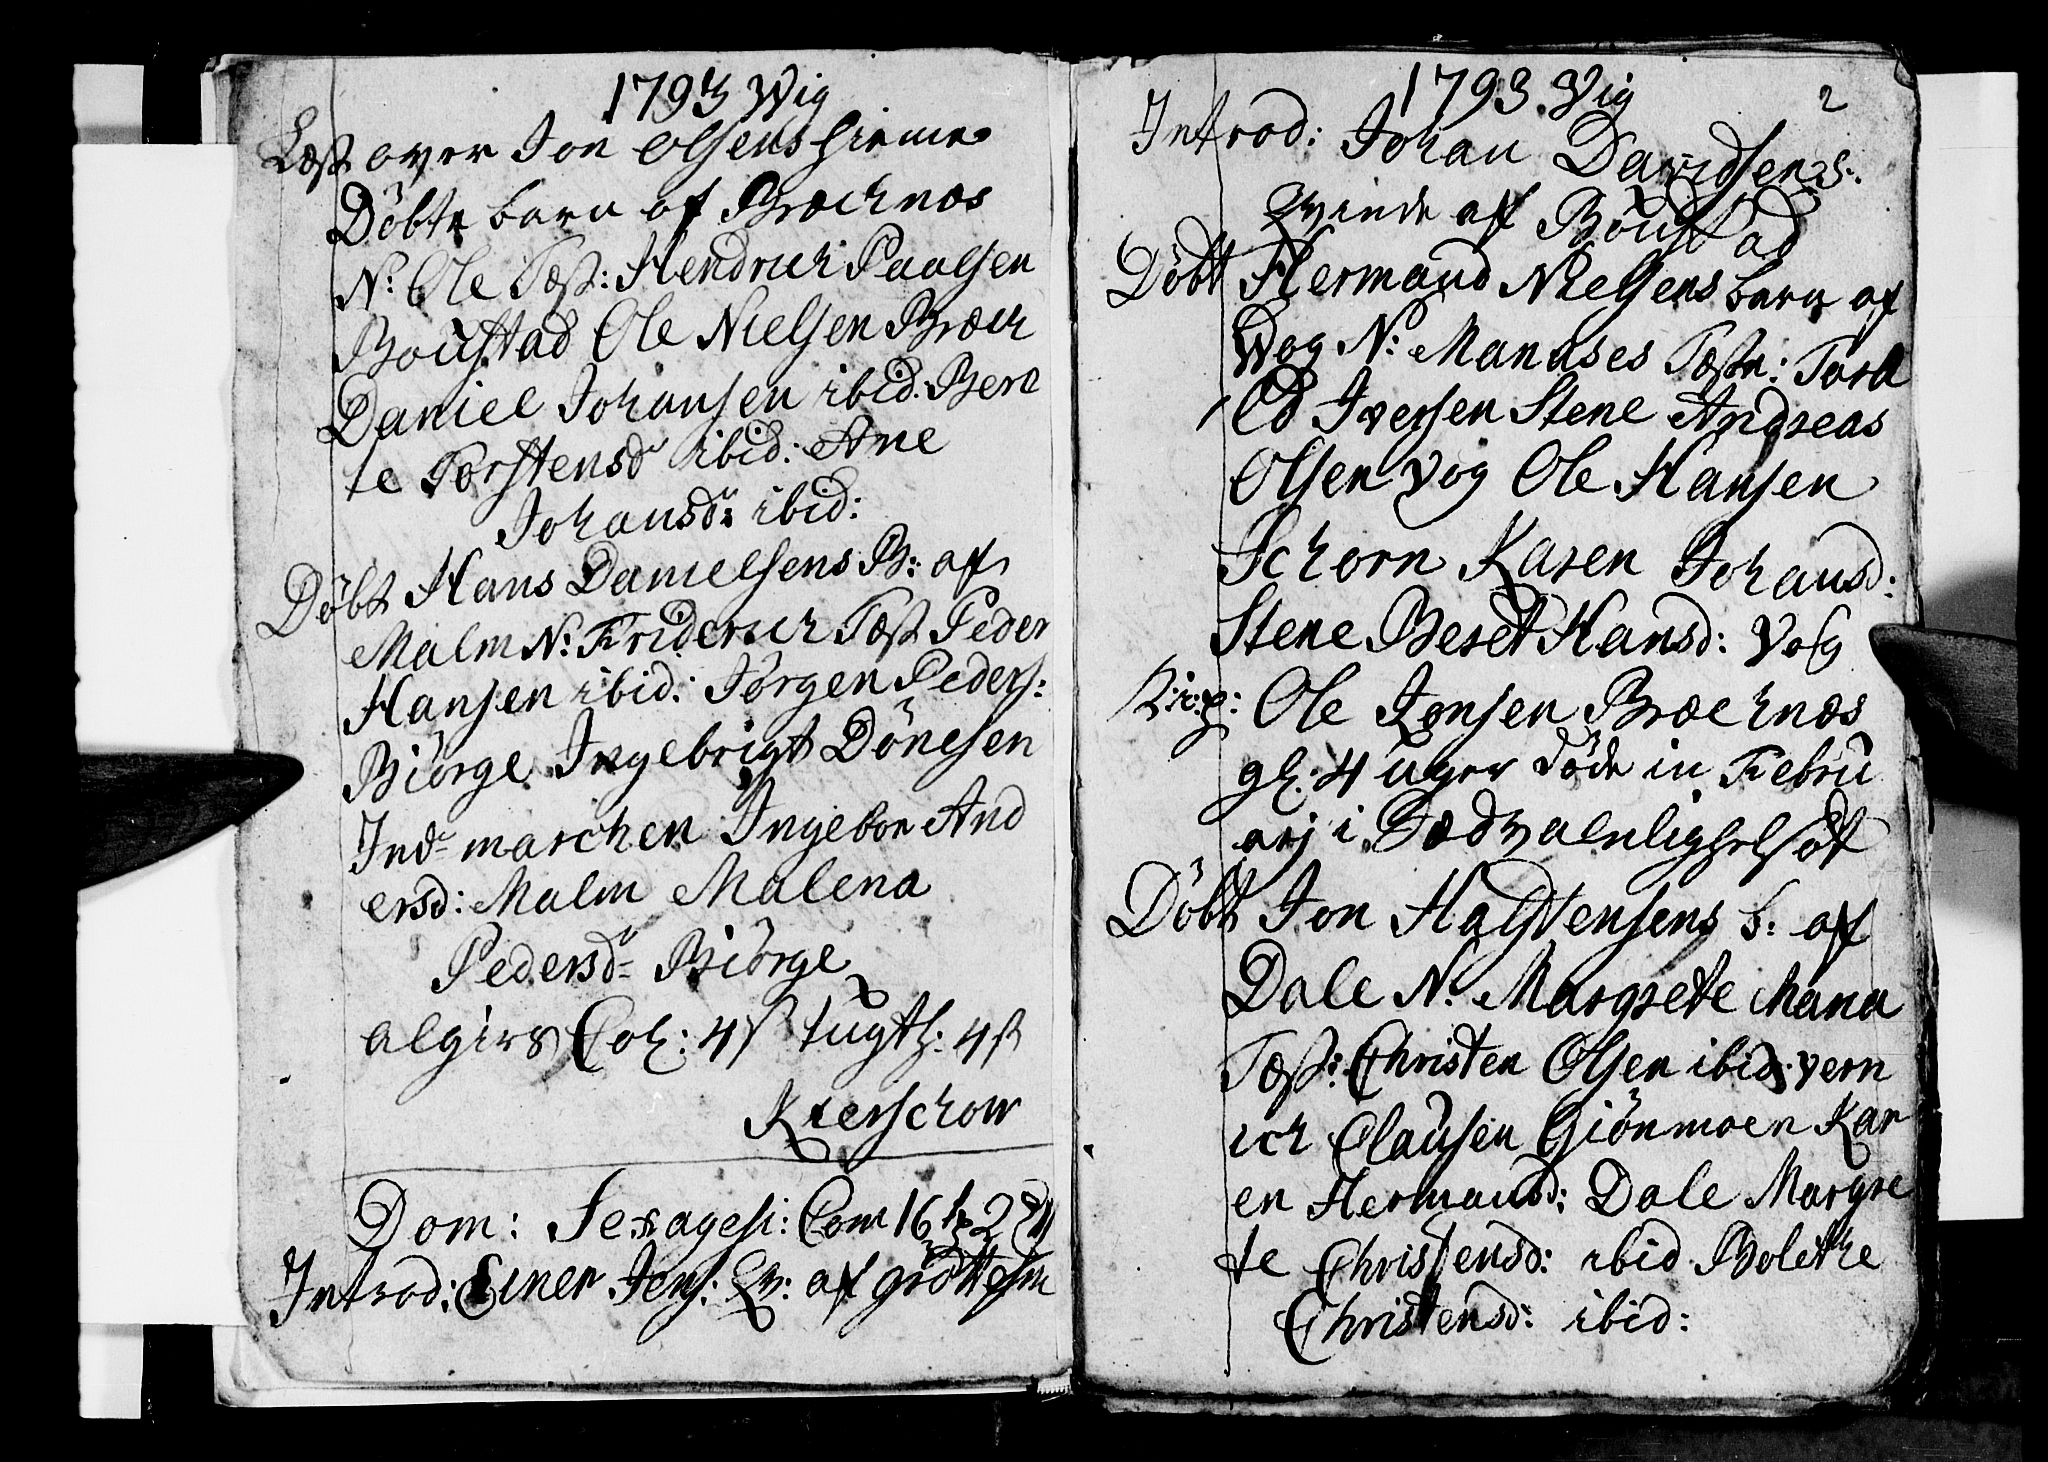 1793 Wig
Læst over Jon Olsens hieme
Döbte barn af Bræchnæs
N: Ole Test: Hendrich Paalsen
Boüstad Ole Nielsen Bræch
Daniel Johansen ibid. Bere
te Torstensdr ibid: Ane
Johansdr ibid:
Döbt Hans Danielsens B: af
Malm N: Friderich Test Peder
Hansen ibid: Jörgen Peders:
Biörge Ingebrigt Dönesen
Indr marchen Ingebor And
ersd: Malm Malena
Pedersdr Biörge
algirs Coh: 4 ß tügth: 4 ß
Kierschow
Dom: Sexagesi: Com 16
Introd: Einer Jens: Qv: af grötteim
1793 Vig
2
Introd: Johan Davidsens
qvinde af Boüstad
Döbt Hermand Nielsens barn af
Vog N: Manases Teste: Tora
ld Iversen Stene Andreas
Olsen Vog Ole Hansen
Schorn Karen Johansd:
Stene Beret Hansd: Vog
Ole Jonsen Bræchnæs
gl: 4 uger döde in Febrü
arj i
Döbt Jon Halstensens b: af
Dale N: Margrete Mana
Test: Christen Olsen ibid: vern
ich Claüsen Giönmoen Kar
en Hermansd: Dale Margre
te Christensd: ibid Bolethe
Christensd: ibid: